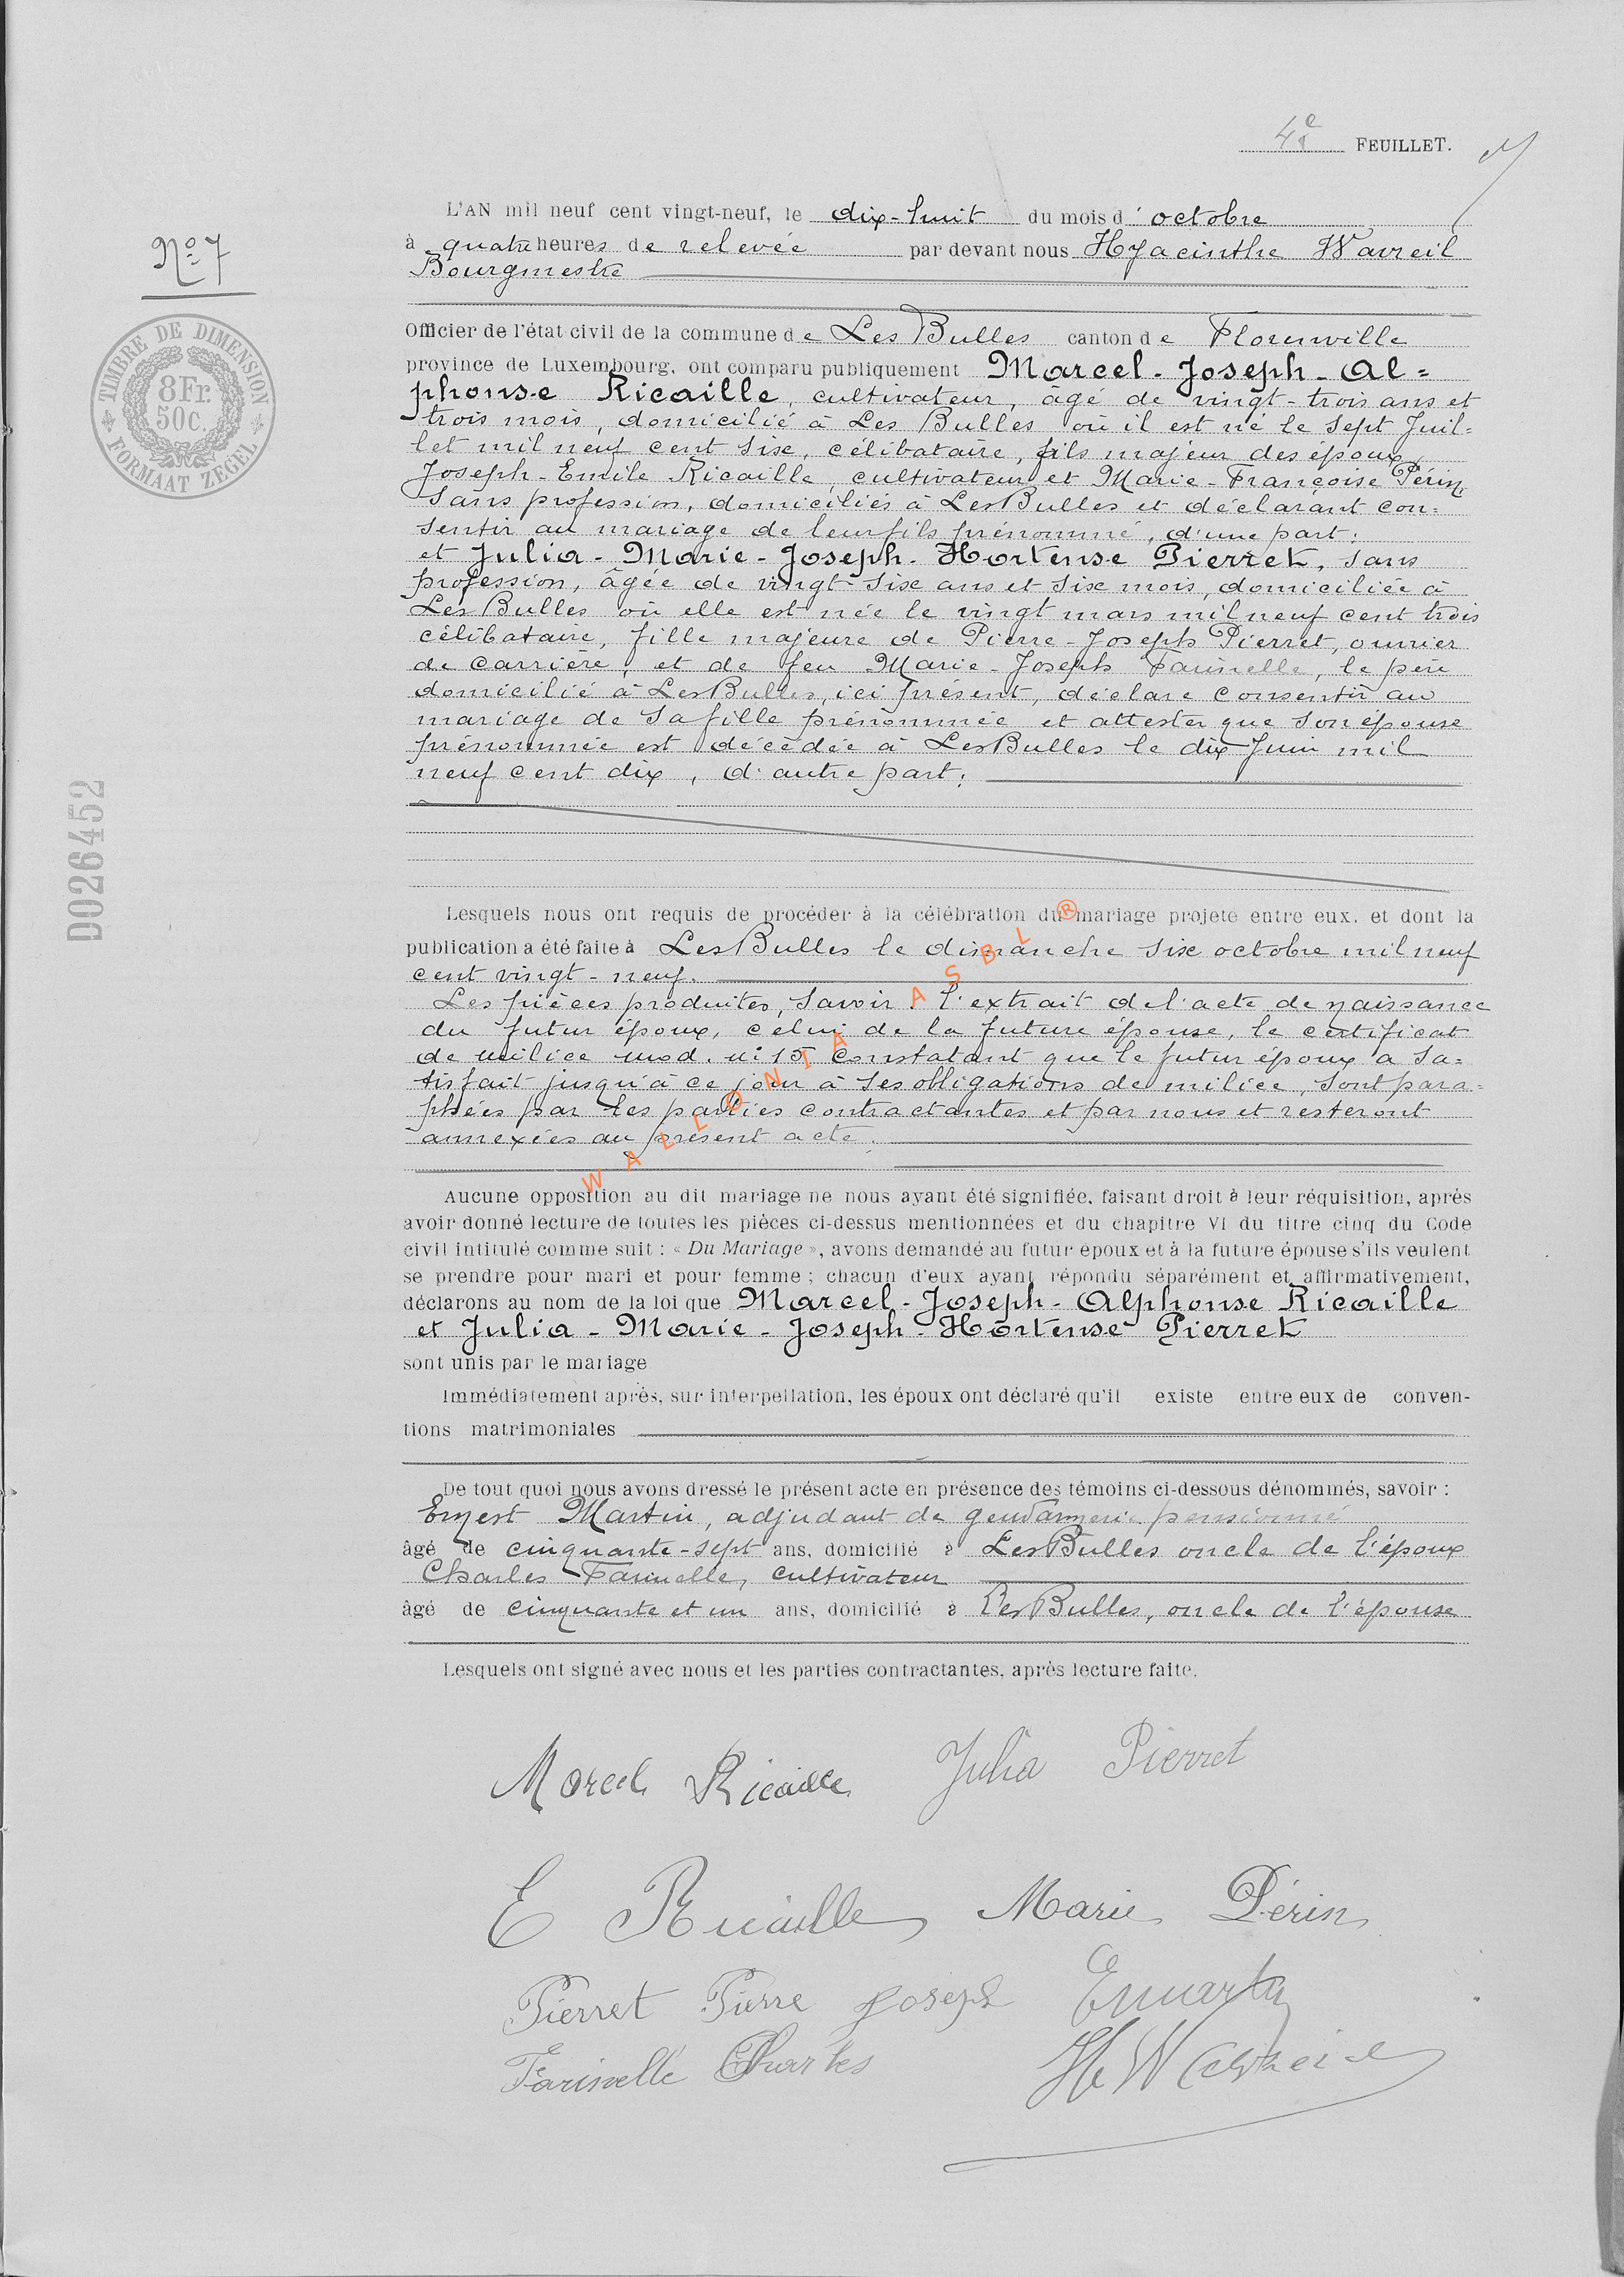 4e FEUILLET.
No 7
TIMBRE DE DIMENSION
8 Fr.
50 c.
FORMAAT ZEGEL
D026452
L'AN mil neuf cent vingt-neuf, le dix-huit du mois d'octobre
à quatre heures de relevée par devant nous Hyacinthe Wavreil
Bourgmestre
Officier de l'état civil de la commune de Les Bulles canton de Florenville
province de Luxembourg, ont comparu publiquement Marcel-Joseph-Al=
phonse Ricaille, cultivateur, âgé de vingt-trois ans et
trois mois, domicilié à Les Bulles où il est né le sept Juil=
let mil neuf cent six, célibataire, fils majeur des époux
Joseph-Emile Ricaille, cultivateur et Marie-Françoise Périn
sans profession, domiciliés à Les Bulles et déclarant con=
sentir au mariage de leur fils prénommé, d'une part;
et Julia-Marie-Joseph-Hortense Pierret, sans
profession, âgée de vingt-six ans et six mois, domiciliée à
Les Bulles où elle est née le vingt mars mil neuf cent trois
célibataire, fille majeure de Pierre-Joseph Pierret, ouvrier
de carrière, et de feu Marie-Joseph Farinelle, le père
domicilié à Les Bulles, ici présent, déclare consentir au
mariage de sa fille prénommée et attester que son épouse
prénommée est décédée à Les Bulles le dix Juin mil
neuf cent dix, d'autre part;
Lesquels nous ont requis de procéder à la célébration du mariage projeté entre eux, et dont la
publication a été faite à Les Bulles le dimanche six octobre mil neuf
cent vingt-neuf.
Les pièces produites, savoir: l'extrait de l'acte de naissance
du futur époux, celui de la future épouse, le certificat
de milice mod. n: 15 constatant que le futur époux a sa=
tisfait jusqu'à ce jour à ses obligations de milice, sont para=
phées par les parties contractantes et par nous et resteront
annexées au présent acte.
WALLONIA ASBL ®
Aucune opposition au dit mariage ne nous ayant été signifiée, faisant droit à leur réquisition, après
avoir donné lecture de toutes les pièces ci-dessus mentionnées et du chapitre VI du titre cinq du Code
civil intitulé comme suit : « Du Mariage », avons demandé au futur époux et à la future épouse s'ils veulent
se prendre pour mari et pour femme ; chacun d'eux ayant répondu séparément et affirmativement,
déclarons au nom de la loi que Marcel-Joseph-Alphonse Ricaille
et Julia-Marie-Joseph-Hortense Pierret
sont unis par le mariage
Immédiatement après, sur interpellation, les époux ont déclaré qu'il existe entre eux de conven-
tions matrimoniales
De tout quoi nous avons dressé le présent acte en présence des témoins ci-dessous dénommés, savoir :
Ernest Martin, adjudant de gendarmerie pensionné
âgé de cinquante-sept ans, domicilié à Les Bulles oncle de l'époux
Charles Farinelle, cultivateur
âgé de cinquante et un ans, domicilié à Les Bulles, oncle de l'épouse
Lesquels ont signé avec nous et les parties contractantes, après lecture faite.
Marcel Ricaille Julia Pierret
E Ricaille Marie Périn
Pierret Pierre Joseph E Martin
Farinelle Charles H Wavreil